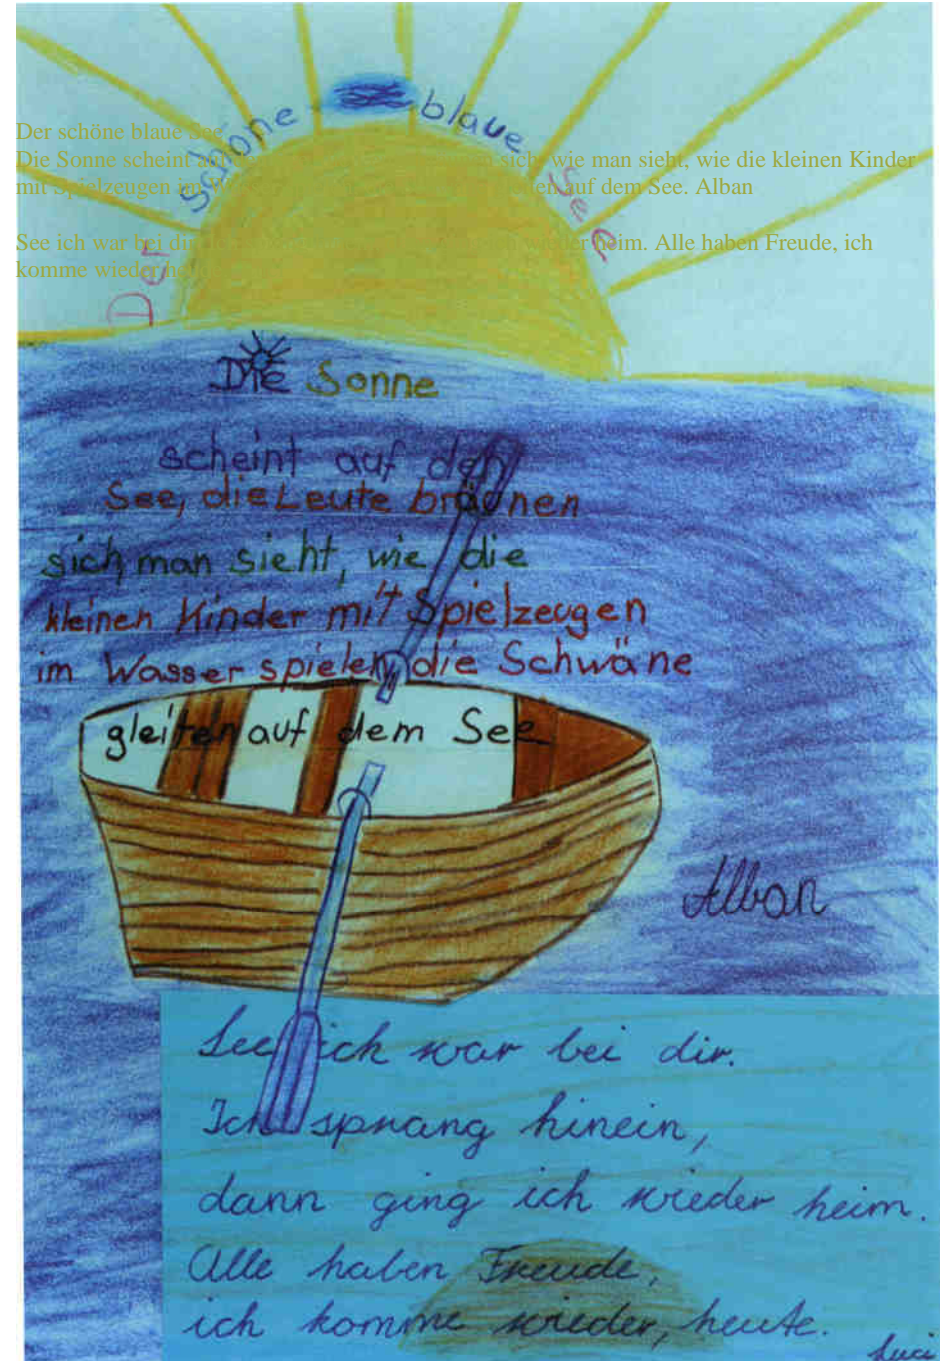 Der schöne blaue See
Der schöne blaue See
Die Sonne scheint auf sich, wie man sieht, wie die kleinen Kinder
mit Spielzeugen im auf dem See. Alban
See ich war bei dir heim. Alle haben Freude, ich
komme wieder
Die Sonne
scheint auf den
See, die Leute bräunen
sich man sieht, wie die
kleinen Kinder mit Spielzeugen
im Wasser spielen, die Schwäne
gleiten auf dem See
Alban
See ich war bei dir.
Ich sprang hinein,
dann ging ich wieder heim.
Alle haben Freude,
ich komme wieder, heute.
Luci